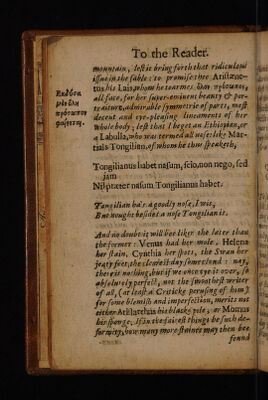 To the Reader.
mountain, lest it bring forth that ridiculous
issue in the fable: to promise thee Aristæne-
tus his Lais, whom he tearmes ὅλη πρόσωπον,
all face, for her super-eminent beauty & por-
traiture, admirable symmetrie of parts, most
decent and eye-pleasing lineaments of her
whole body; lest that I beget an Ethiopian, or
a Labulla, who was termed all nose: like Mar-
tials Tongilion, of whom he thus speaketh,
Tongilianus habet nasum, scio, non nego, sed
jam
Nil præter nasum Tongilianus habet.
Tongilian ha's a goodly nose, I wis,
But nought besides a nose Tongilian is.
And no doubt it will bee liker the later than
the former: Venus had her mole, Helena
her stain, Cynthia her spots, the Swan her
jeaty feet, the cleerest day some cloud: nay,
there is nothing, but if we once eye it over, so
absolutely perfect, not the smoothest writer
of all, (at least a Criticke perusing of him)
for some blemish and imperfection, merits not
either Aristarchus his blacke pile, or Momus
his sponge. If in the fairest things be such de-
formity, how many more staines may then bee
found